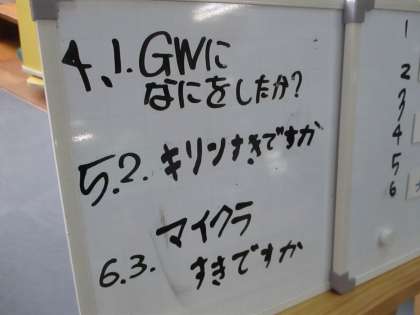 4.1.GWに
なにをしたか?
5.2.キリンすきですか
6.3.マイクラ
すきですか
1
2
3
4
5
6